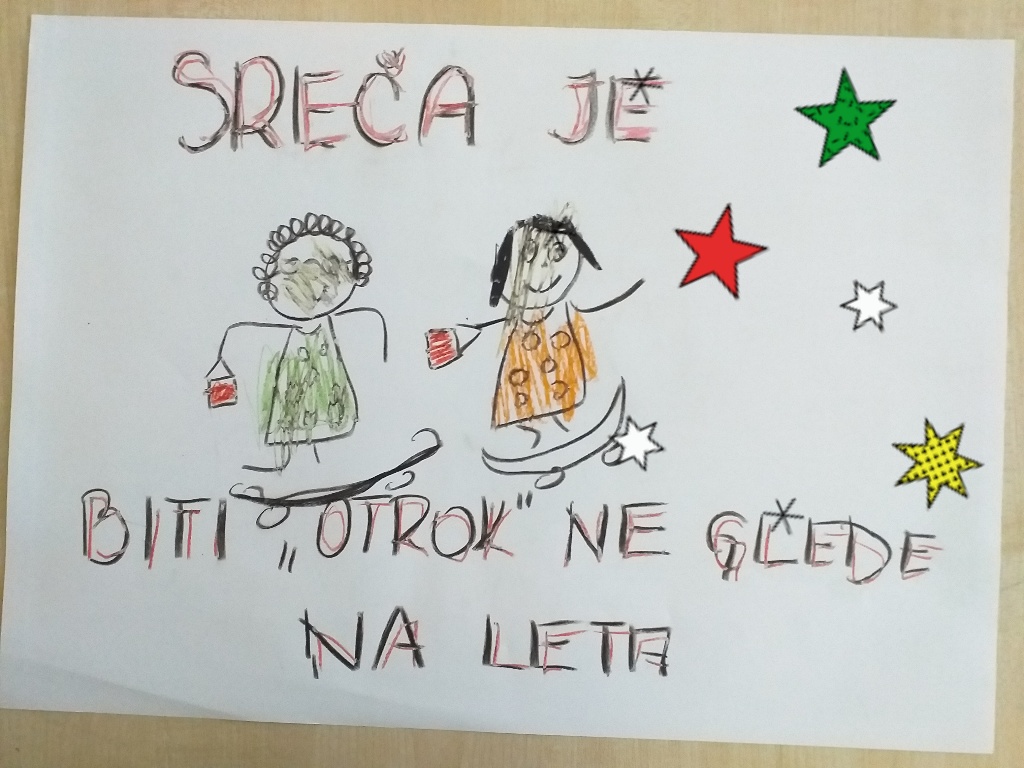 SREČA JE
BITI „OTROK" NE GLEDE
NA LETA